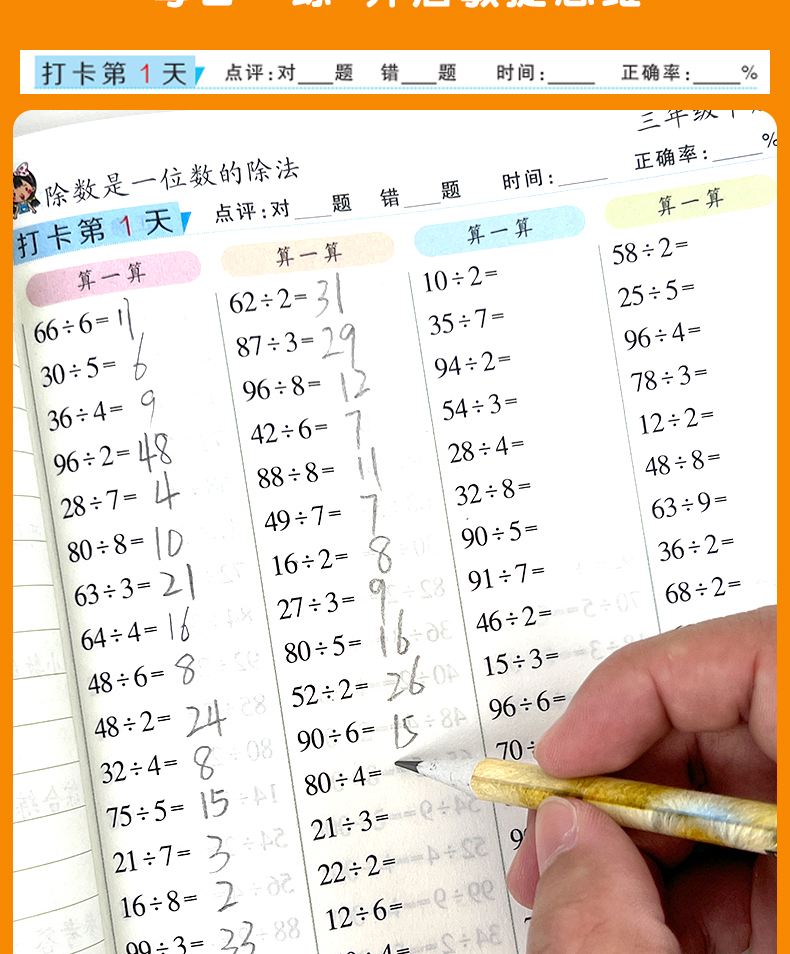 打卡第1天 点评:对___题 错___题 时间:____ 正确率:____%
除数是一位数的除法
打卡第1天 点评:对___题 错___题 时间:____ 正确率:____%
算一算
66÷6=11
30÷5=6
36÷4=9
96÷2=48
28÷7=4
80÷8=10
63÷3=21
64÷4=16
48÷6=8
48÷2=24
32÷4=8
75÷5=15
21÷7=3
16÷8=2
99÷3=33
算一算
62÷2=31
87÷3=29
96÷8=12
42÷6=7
88÷8=11
49÷7=7
16÷2=8
27÷3=9
80÷5=16
52÷2=26
90÷6=15
80÷4=
21÷3=
22÷2=
12÷6=
算一算
10÷2=
35÷7=
94÷2=
54÷3=
28÷4=
32÷8=
90÷5=
91÷7=
46÷2=
15÷3=
96÷6=
70÷
算一算
58÷2=
25÷5=
96÷4=
78÷3=
12÷2=
48÷8=
63÷9=
36÷2=
68÷2=